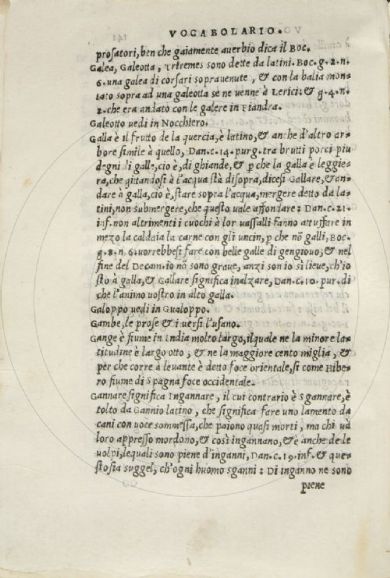 VOCABOLARIO.
prosatori, ben che gaiamente averbio dica il Boc.
Galea, Galeotta, triremes sono dette da latini. Boc. g. 2. n.
6. una galea di corsari sopravenute, & con la balia mon
tato sopra ad una galeotta se ne venne à Lerici: & g. 4. n.
2. che era andato con le galere in Fiandra.
Galeotto vedi in Nocchiero.
Galla è il frutto de la quercia, è latino, & anche d'altro ar
bore simile à quello, Dan. c. 14. purg. tra brutti porci piu
degni di galle, cio è, di ghiande, & p che la galla è leggie
ra, che gittandosi à l'acqua stà di sopra, dicesi Gallare, & an
dare à galla, cio è, stare sopra l'acqua, mergere detto da la
tini, non submergere, che questo vale affondare: Dan. c. 21.
inf. non altrimenti i cuochi à lor vassalli Fanno attuffare in
mezo la caldaia la carne con gli uncin, p che nõ galli, Boc.
g. 8. n. 6. vorrebbesi fare con belle galle di gengiovo; & nel
fine del Decam. io nõ sono grave, anzi son io si lieve, ch'io
sto à galla, & Gallare significa inalzare, Dan. c. 10. pur. di
che l'animo vostro in alto galla.
Galoppo vedi in Gualoppo.
Gambe, le prose & i versi l'usano.
Gange è fiume in India molto largo, il quale ne la minore la
titudine è largo otto, & ne la maggiore cento miglia, &
per che corre à levante è detto foce orientale, si come Hibe
ro fiume di Spagna foce occidentale.
Gannare significa Ingannare, il cui contrario è Sgannare, è
tolto da Gannio latino, che significa fare uno lamento da
cani con voce sommessa, che paiono quasi morti, ma chi va
loro appresso mordono, & così ingannano, & è anche de le
volpi, lequali sono piene d'inganni, Dan. c. 19. inf. & que
sto sia suggel, ch'ogni huomo sganni: Di inganno ne sono
piene